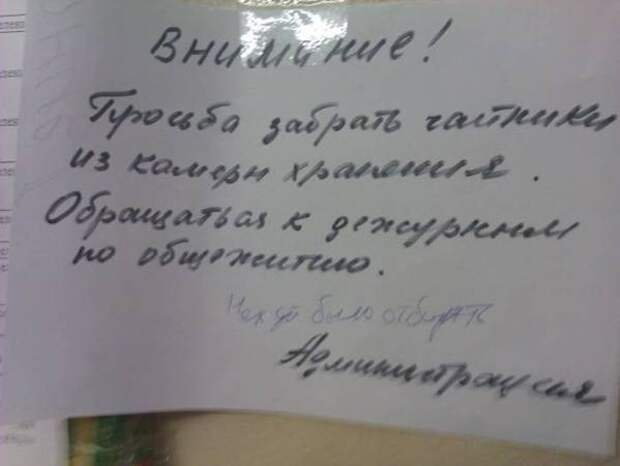 Внимание!
Просьба забрать чайники
из камеры хранения.
Обращаться к дежурным
по общежитию.
Нехуй было отбирать
Администрация